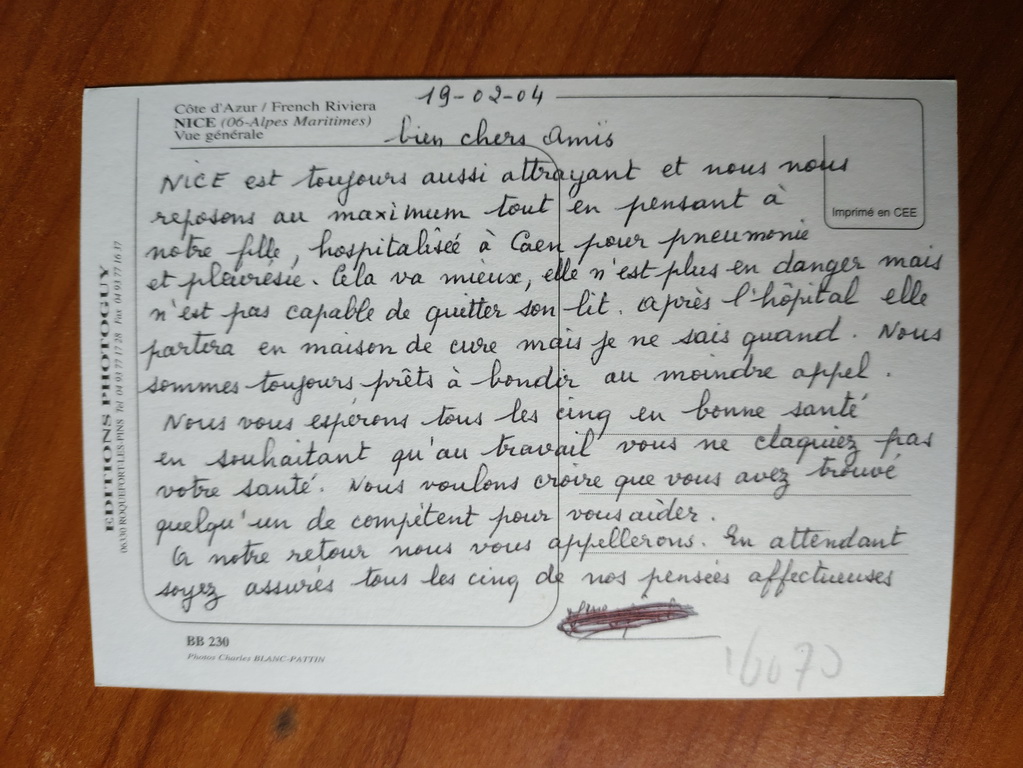 19-02-04
Côte d'Azur / French Riviera
NICE (06-Alpes Maritimes)
Vue générale
bien chers amis
NICE est toujours aussi attrayant et nous nous
reposons au maximum tout en pensant à
notre fille, hospitalisée à Caen pour pneumonie
et pleurésie. Cela va mieux, elle n'est plus en danger mais
n'est pas capable de quitter son lit. après l'hôpital elle
partira en maison de cure mais je ne sais quand. Nous
sommes toujours prêts à bondir au moindre appel.
Nous vous espérons tous les cinq en bonne santé
en souhaitant qu'au travail vous ne claquiez pas
votre santé. Nous voulons croire que vous avez trouvé
quelqu'un de compétent pour vous aider.
A notre retour nous vous appellerons. En attendant
soyez assurés tous les cinq de nos pensées affectueuses
Imprimé en CEE
EDITIONS PHOTOGUY
06330 ROQUEFORT-LES-PINS Tel 04 93 77 17 28 Fax 04 93 77 16 37
BB 230
Photos Charles BLANC-PATTIN
16070